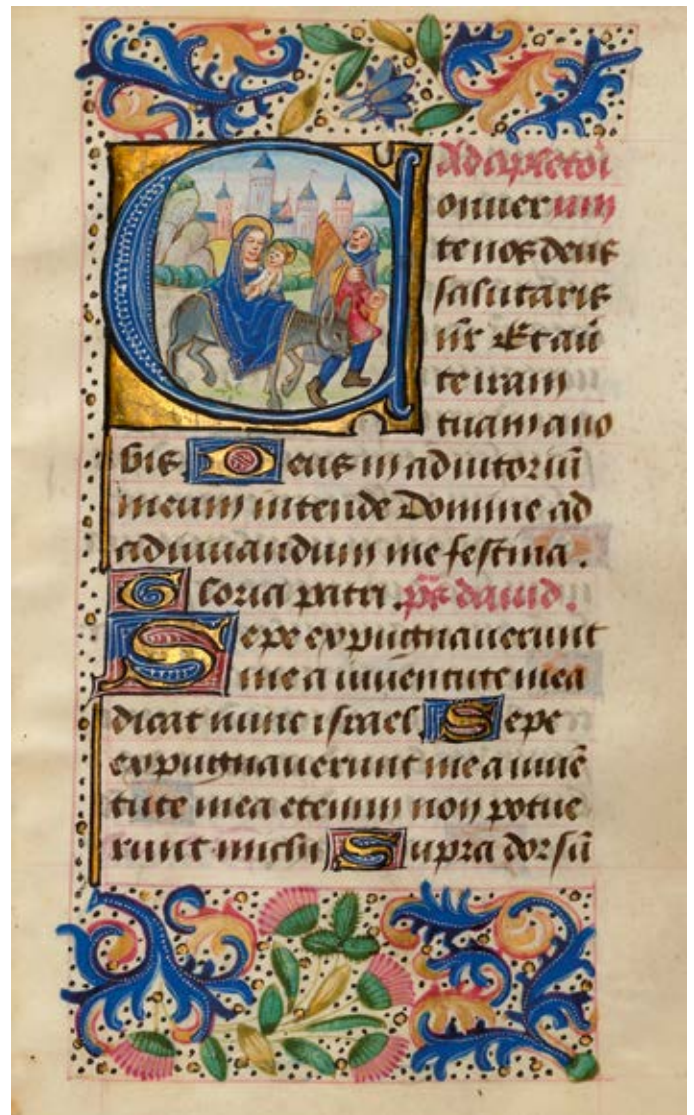 Ad completori
Conuer um
te nos deus
salutaris
nr̄ Et au̅
te iram
tuam a no
bis Deus in adiutoriu̅
meum intende Domine ad
adiuuandum me festina.
Gloria patri. ps̄ dauid.
Sepe expugnauerunt
me a iuuentute mea
dicat nunc israel. Sepe
expugnauerunt me a iuue̅
tute mea etenim non potue
runt michi Supra dorsu̅